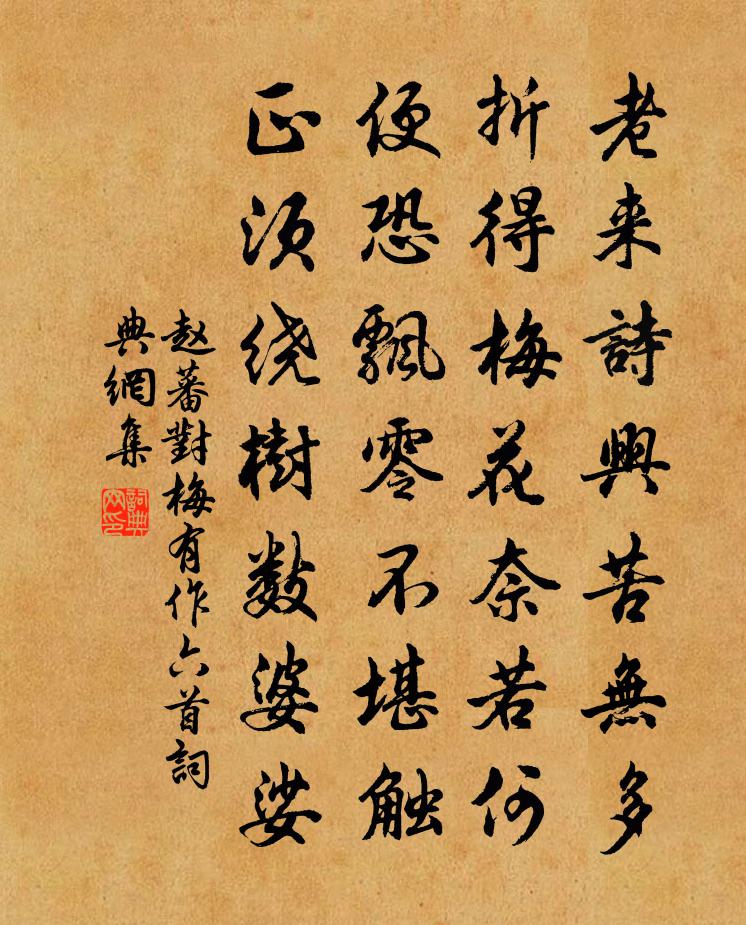 老来詩興苦無多
折得梅花奈若何
便恐飄零不堪触
正须绕樹数婆娑
赵蕃對梅有作六首詞
典網集
詞典网印